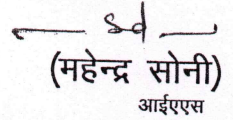 sd
(महेन्द्र सोनी)
आईएएस